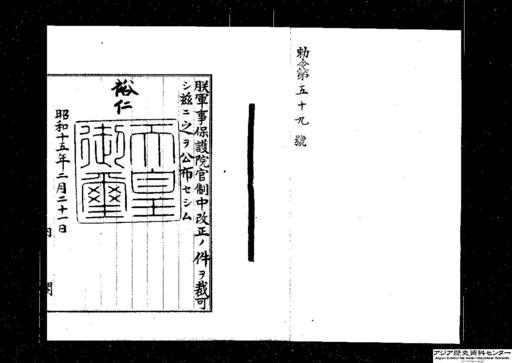 勅令第五十九號
朕軍事保護院官制中改正ノ件ヲ裁可
シ茲ニ之ヲ公布セシム
裕仁
天皇
御璽
昭和十五年二月二十一日
内閣
アジア歴史資料センター
Japan Center for Asian Historical Records